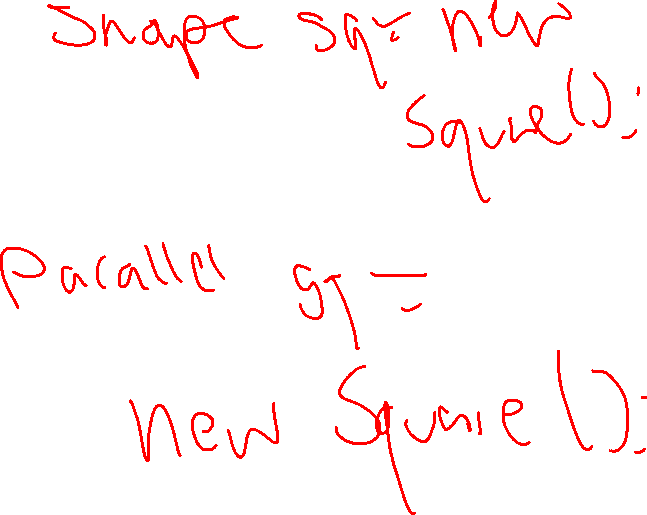 Shape sq = new
Square();
Parallel sq =
new Square();